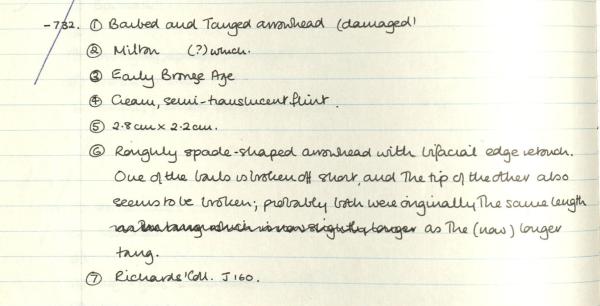 -732. ① Barbed and Tanged arrowhead (damaged)
② Milton (?) which.
③ Early Bronze Age
④ Cream, semi-translucent flint.
⑤ 2.8cm x 2.2cm.
⑥ Roughly spade-shaped arrowhead with bifacial edge retouch.
One of the barbs is broken off short, and The tip of the other also
seems to be broken; probably both were originally The same length
as the tang which is now slightly longer as The (now) longer
tang.
⑦ Richards' Coll. J160.